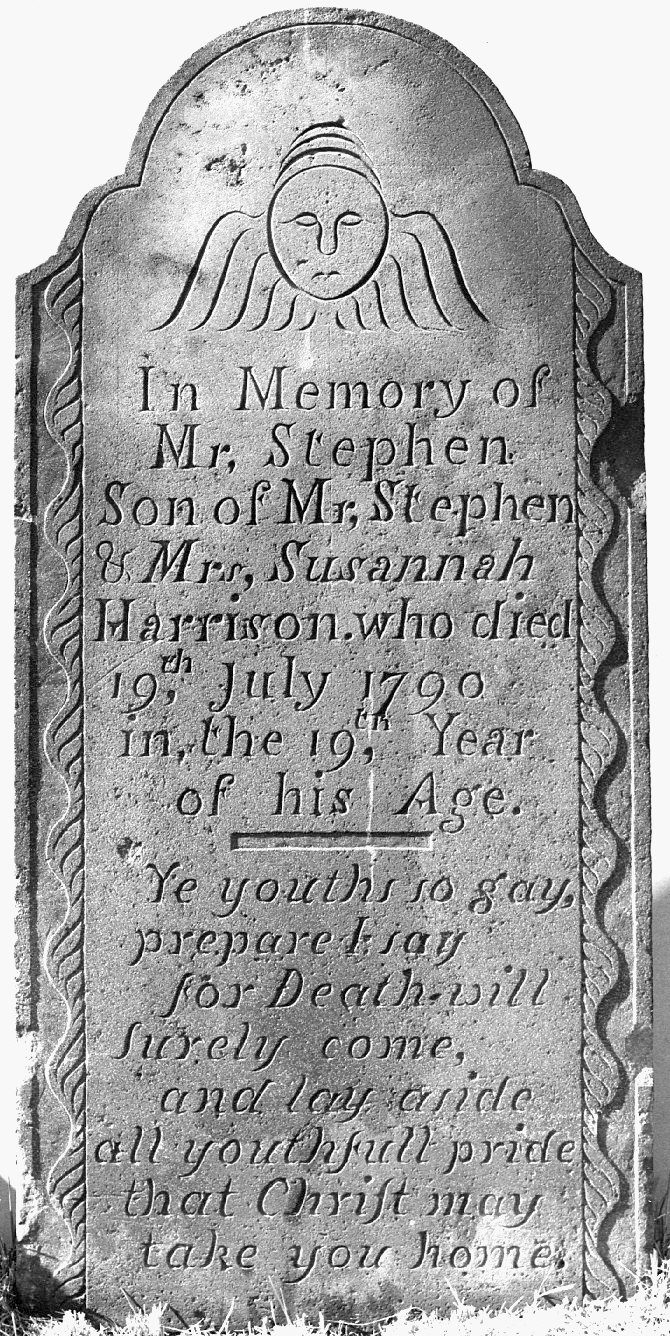 In Memory of
Mr, Stephen
Son of Mr, Stephen
& Mrs, Susannah
Harrison. who died
19,th July 1790
in, the 19,th Year
of his Age.
Ye youths ſo gay,
prepare I ſay
for Death will
ſurely come,
and lay aſide
all youthfull pride
that Chriſt may
take you home.